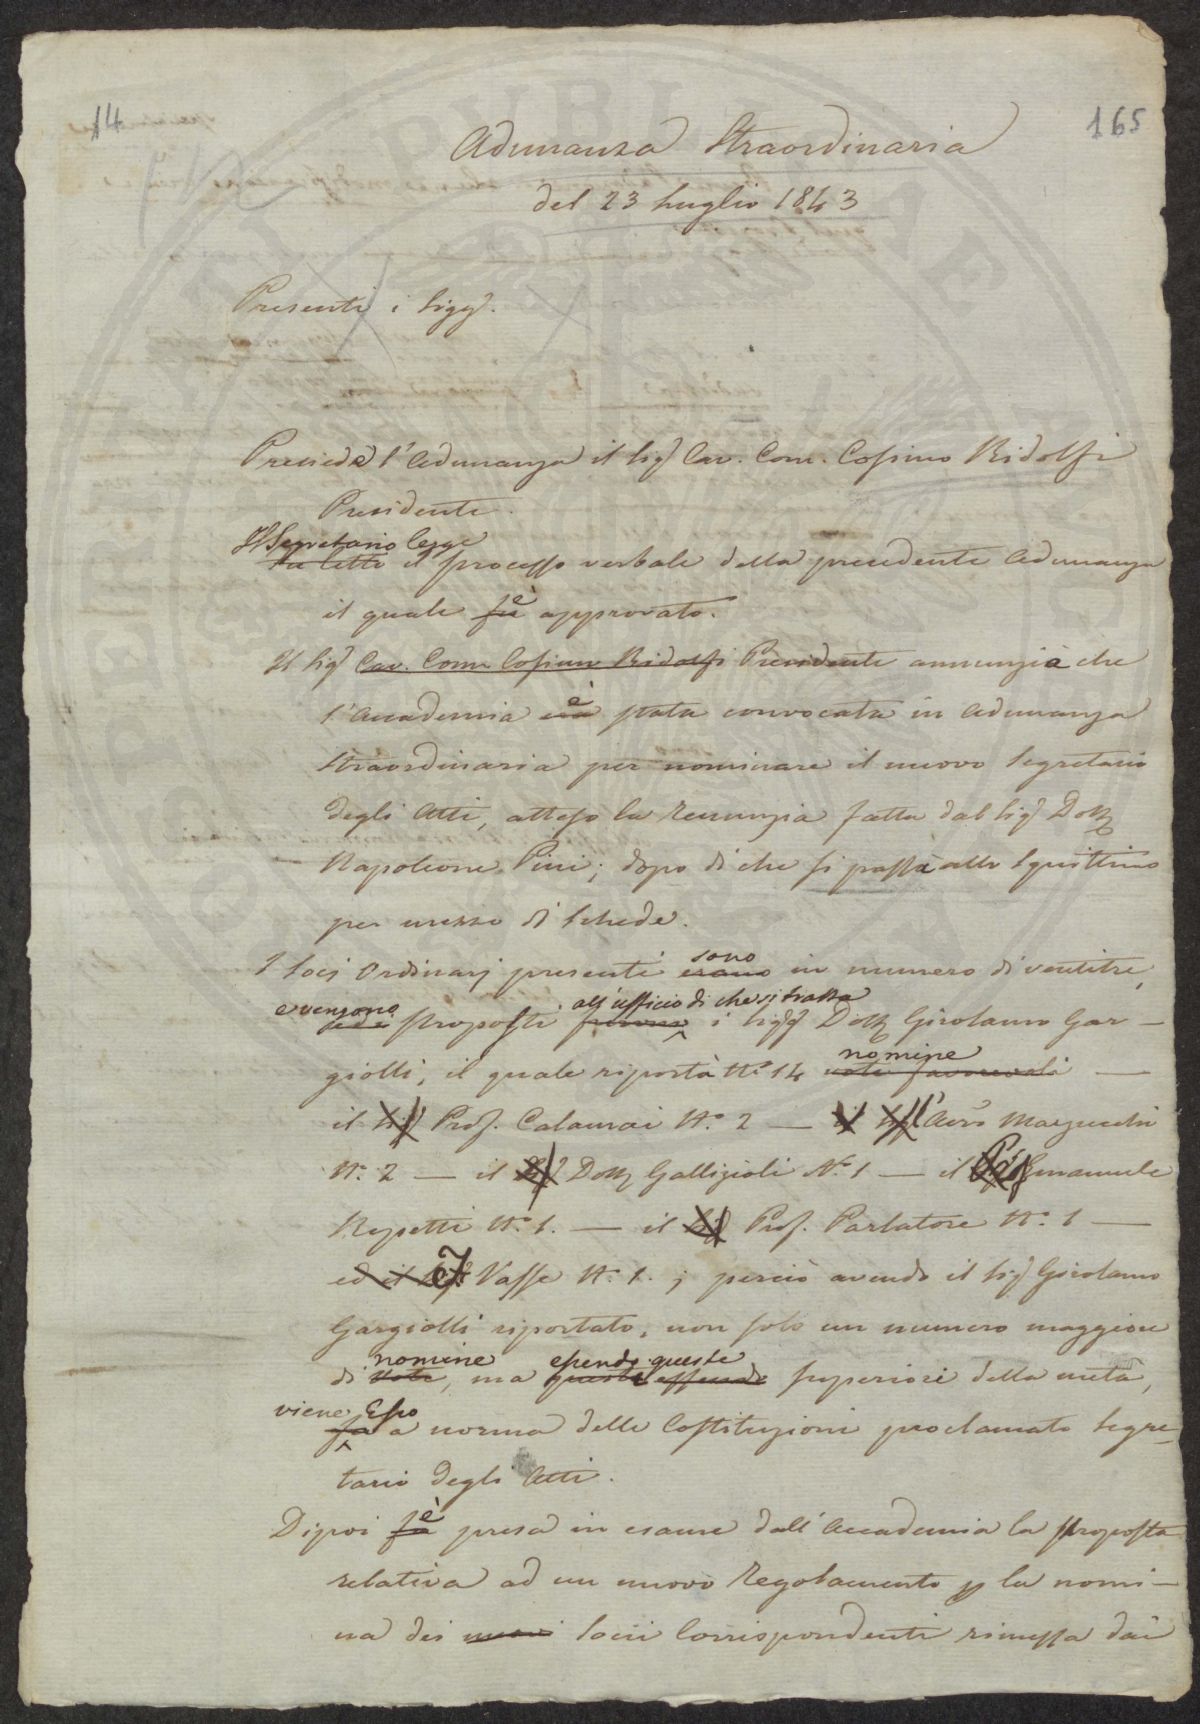 14
165
Adunanza Straordinaria
del 23 Luglio 1843
Presenti i Sigg.i
Presiede l'Adunanza il Sig.e Cav. Com. Cosimo Ridolfi
Presidente.
Il Segretario legge
Fu letto il processo verbale della precedente Adunanza
è
il quale fu approvato.
Il Sig.e Cav. Com. Cosimo Ridolfi Presidente annunzia che
è
l'Accademia era stata convocata in Adunanza
Straordinaria per nominare il nuovo Segretario
degli Atti, atteso la renunzia fatta dal Sig.e Dott.e
Napoleone Pini; dopo di che si passa allo Squittino
per mezzo di Schede.
sono
I Socj Ordinarj presenti erano in numero di ventitre,
e vengono all'ufficio di che si tratta
proposti furono i Sigg.i Dott.e Girolamo Gar-
nomine
giolli, il quale riportà N.o 14 voti favorevoli —
il Sig.e Prof. Calamai N.o 2 — il Sig.e l'Avv.o Marzucchi
N.o 2 — il Sig.e Dott.e Galligioli N.o 1 — il Emanuele
Repetti N.o 1. — il Sig.e Prof. Parlatore N.o 1 —
ed il Vasse N.o 1. ; perciò avendo il Sig.e Girolamo
Gargiolli riportato, non solo un numero maggiore
nomine essendo queste
di Voti, ma questi essendo superiori della metà,
viene Esso
fu a norma delle Costituzioni proclamato Segre-
tario degli Atti.
è
Dipoi fu presa in esame dall'Accademia la proposta
relativa ad un nuovo Regolamento p la nomi-
na dei nuovi Socii Corrispondenti rimessa dai